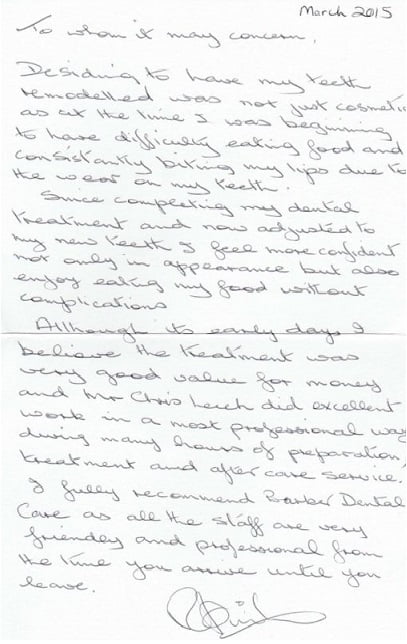 March 2015
To whom it may concern,
Desiding to have my teeth
remodelled was not just cosmetic
as at the time I was beginning
to have difficulty eating food and
consistantly biting my lips due to
the wear on my teeth.
Since completing my dental
treatment and now adjusted to
my new teeth I feel more confident
not only in appearance but also
enjoy eating my food without
complications
Allthough its early days I
believe the treatment was
very good value for money
and Mr Chris Leech did excellent
work in a most professional way
during many hours of preparation,
treatment and after care service.
I fully recommend Barber Dental
Care as all the staff are very
friendly and professional from
the time you arrive until you
leave.